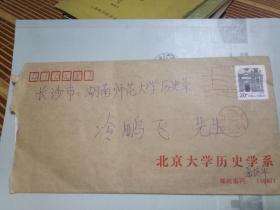 长沙市:湖南师范大学历史系
冷鹏飞 先生
20分
北京大学历史学系
邮政编码:100871